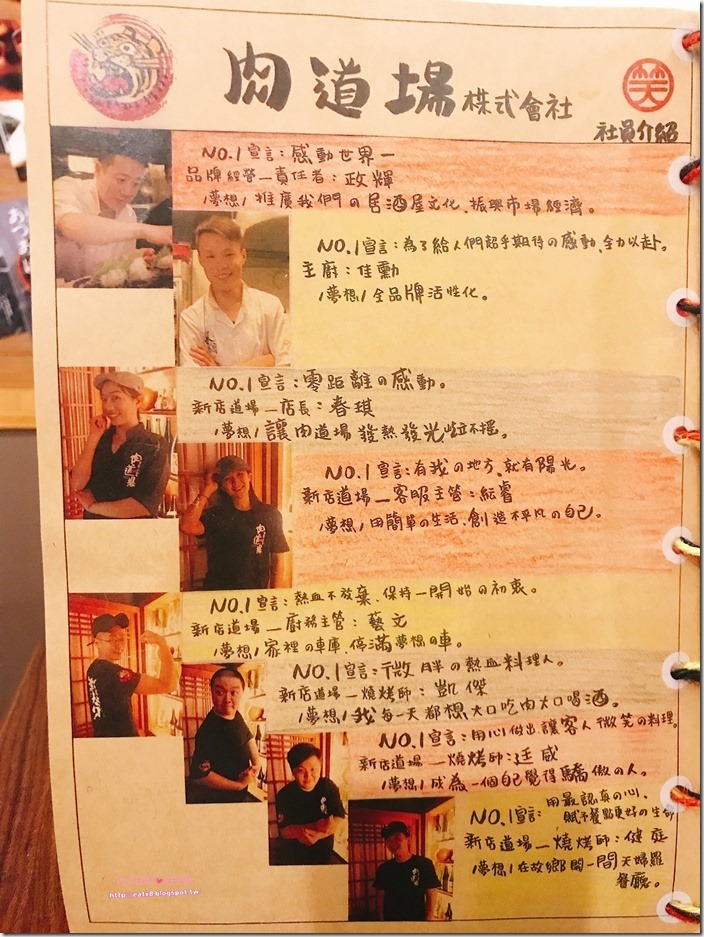 肉道場株式會社
笑
社員介紹
NO.1宣言:感動世界一
品牌經營—責任者:政輝
/夢想/推廣我們の居酒屋文化、振興市場經濟。
NO.1宣言:為了給人們超乎期待の感動、全力以赴。
主廚:佳勳
/夢想/全品牌活性化。
NO.1宣言:零距離の感動。
新店道場—店長:春琪
/夢想/讓肉道場發熱發光屹立不搖。
NO.1宣言:有我の地方、就有陽光。
新店道場—客服主管:紜睿
/夢想/用簡單の生活、創造不平凡の自己。
NO.1宣言:熱血不放棄、保持一開始の初衷。
新店道場—廚務主管:藝文
/夢想/家裡の車庫、停滿夢想の車。
NO.1宣言:微胖の熱血料理人。
新店道場—燒烤師:凱傑
/夢想/我每一天都想大口吃肉大口喝酒。
NO.1宣言:用心做出讓客人微笑の料理。
新店道場—燒烤師:廷威
/夢想/成為一個自己覺得驕傲の人。
NO.1宣言:用最認真の心、
賦予餐點更好の生命
新店道場—燒烤師:健庭
/夢想/在故鄉開一間天婦羅
餐廳。
http://eatx8.blogspot.tw/